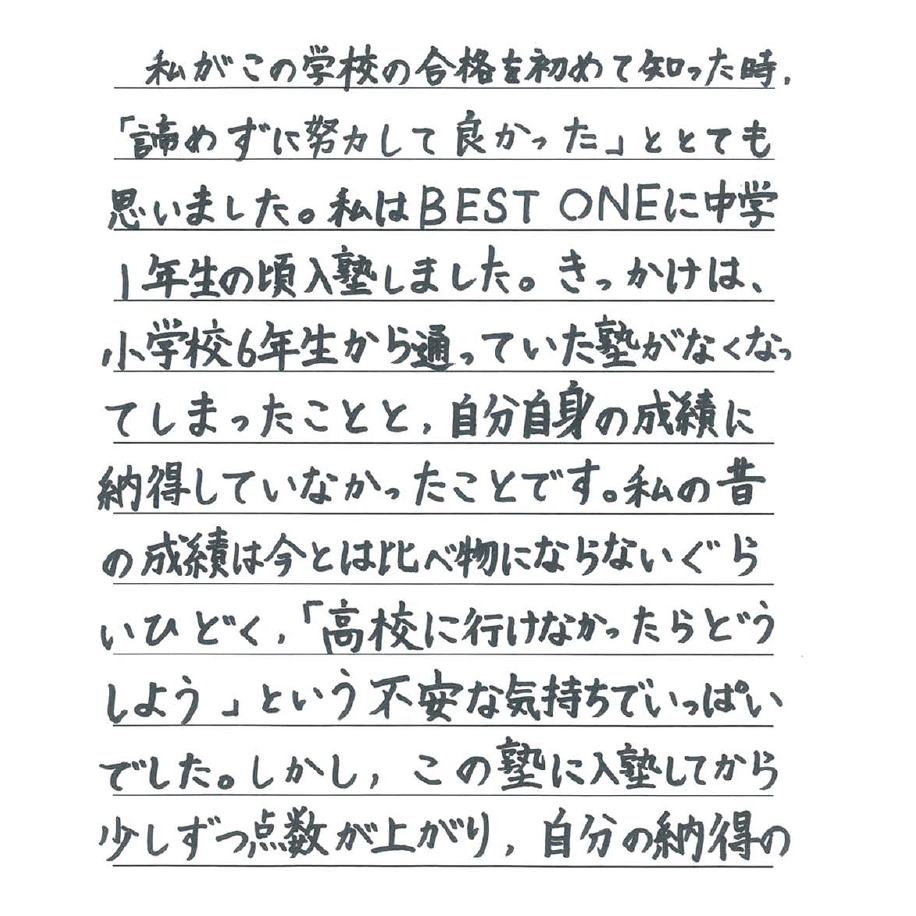 私がこの学校の合格を初めて知った時,
「諦めずに努力して良かった」ととても
思いました。私はBEST ONEに中学
1年生の頃入塾しました。きっかけは、
小学校6年生から通っていた塾がなくなっ
てしまったことと,自分自身の成績に
納得していなかったことです。私の昔
の成績は今とは比べ物にならないぐら
いひどく,「高校に行けなかったらどう
しよう」という不安な気持ちでいっぱい
でした。しかし,この塾に入塾してから
少しずつ点数が上がり,自分の納得の